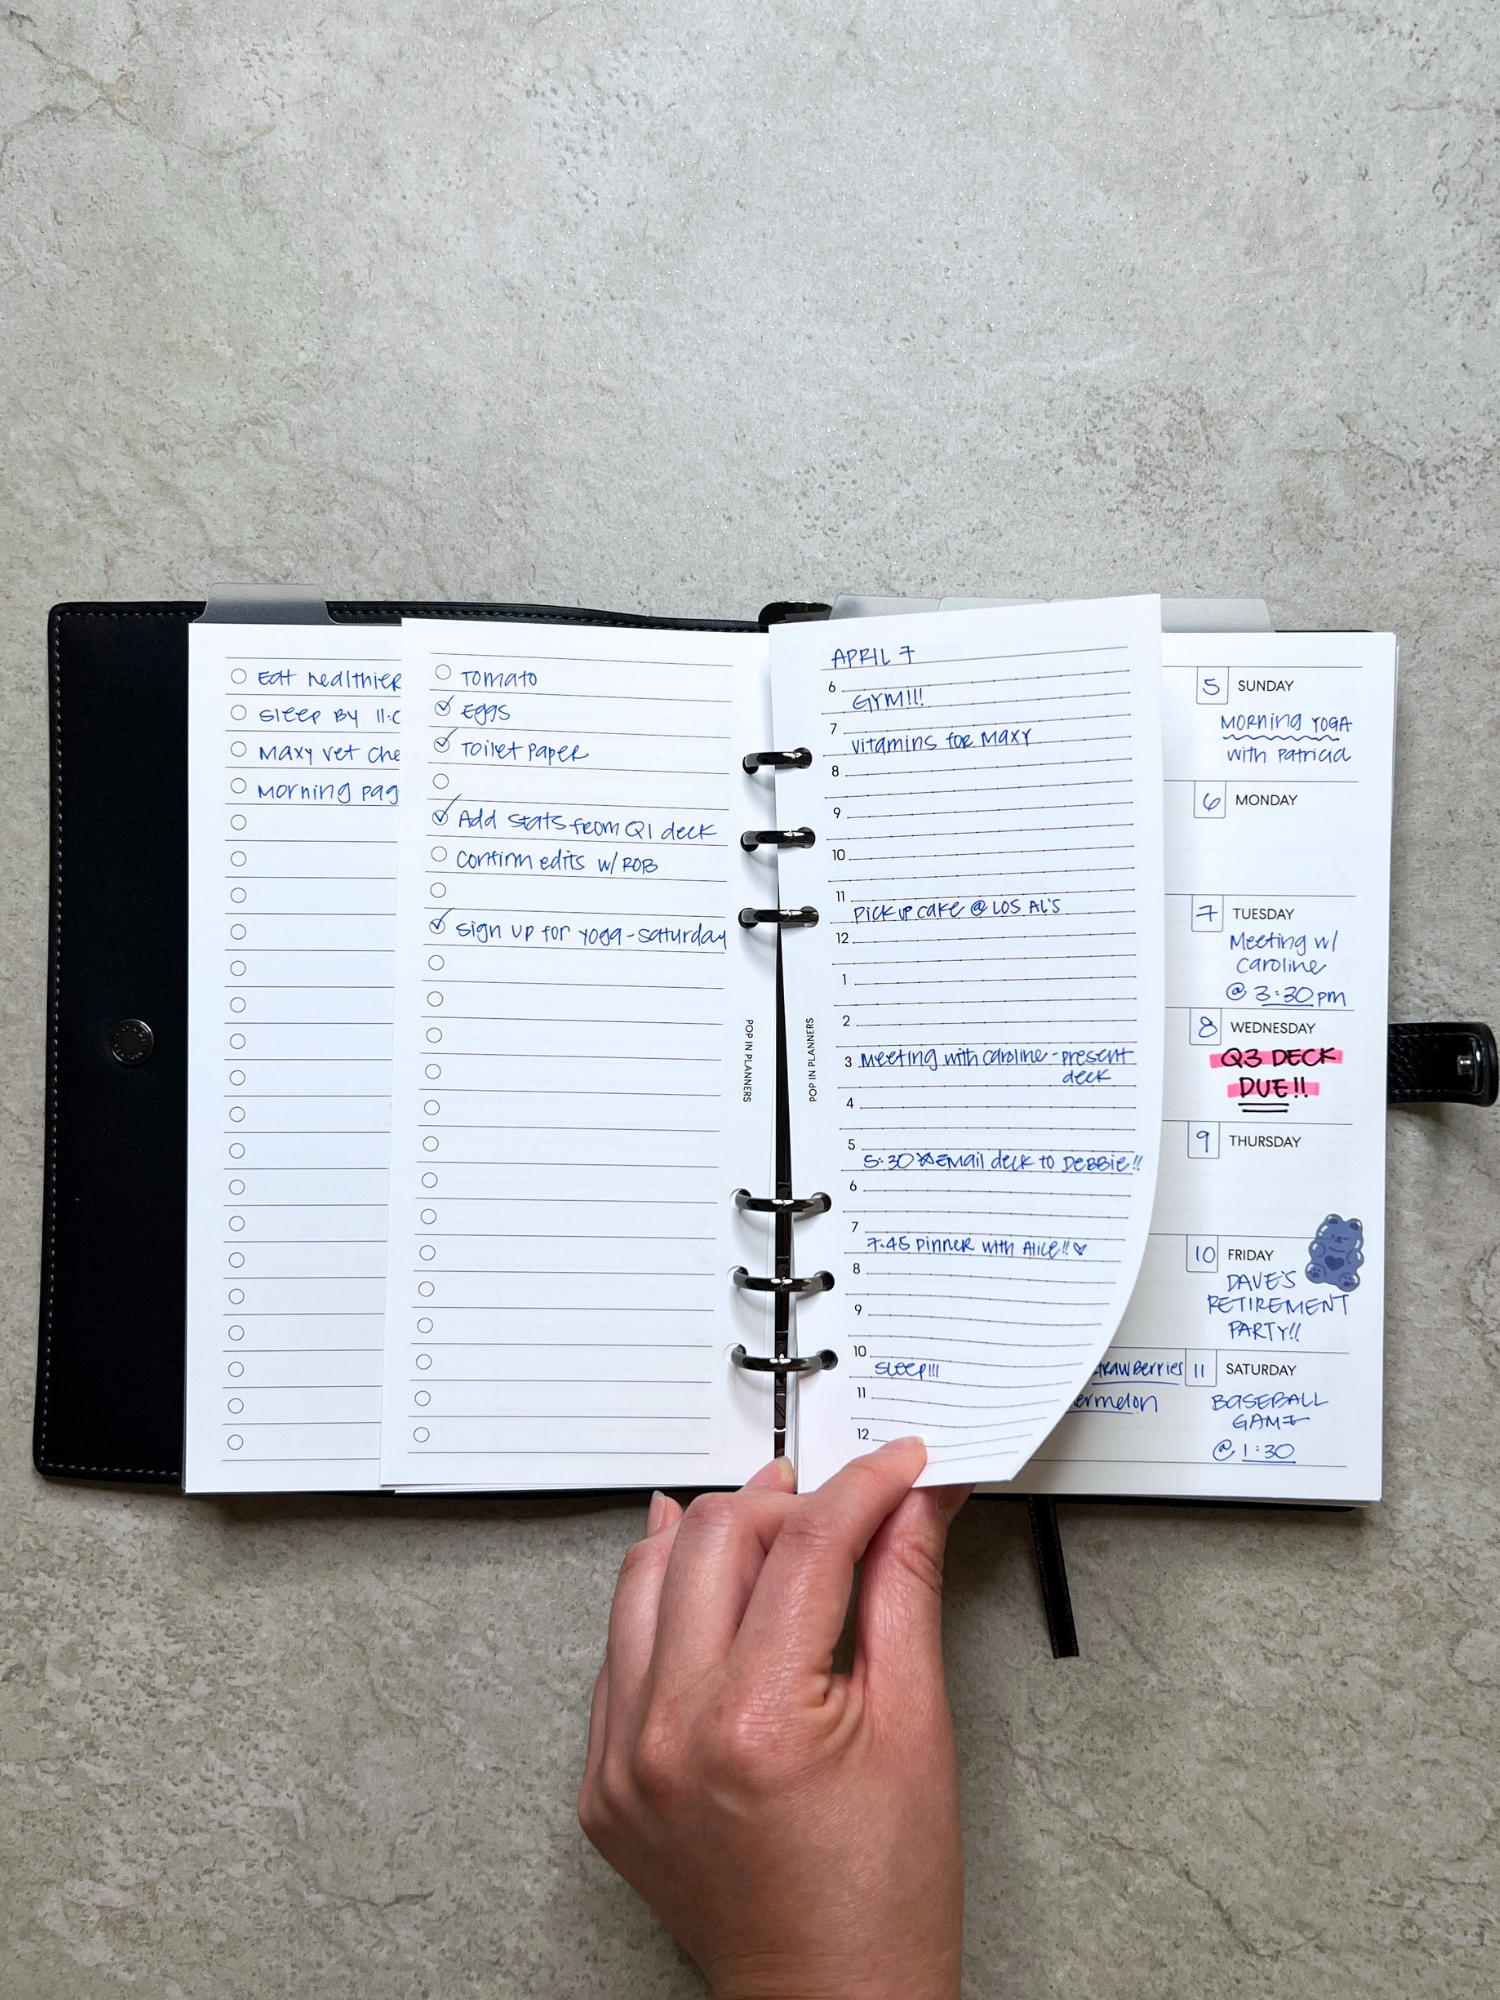 Eat healthier
Sleep By
Maxy vet
Morning
Tomato
Eggs
Toilet Paper
Add stats from Q1 deck
Confirm edits w/ ROB
Sign up for yoga - Saturday
POP IN PLANNERS
POP IN PLANNERS
APRIL 7
6
GYM!!!
7
Vitamins for Maxy
8
9
10
11
Pick up cake @ LOS AL'S
12
1
2
3 Meeting with Caroline - present
deck
4
5
5:30 ☆ Email deck to DEBBIE!!
6
7
7:45 Dinner with Alice!! ♡
8
9
10
SLEEP!!!
11
12
5 SUNDAY
Morning YOGA
with Patricia
6 MONDAY
7 TUESDAY
Meeting w/
Caroline
@ 3:30pm
8 WEDNESDAY
Q3 DECK
DUE!!
9 THURSDAY
10 FRIDAY
DAVE'S
RETIREMENT
PARTY!!
11 SATURDAY
BASEBALL
GAME
@ 1:30